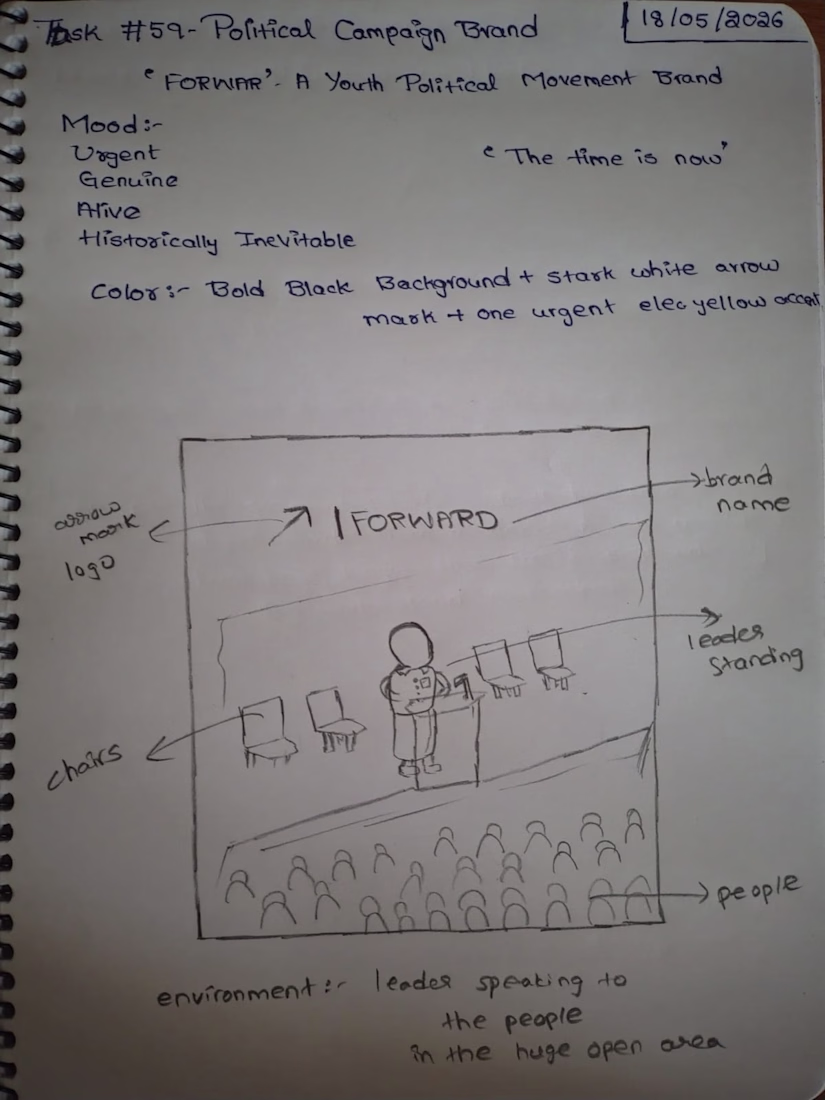 Task #59- Political Campaign Brand
18/05/2026
'FORWAR'- A Youth Political Movement Brand
Mood:-
Urgent
'The time is now'
Genuine
Alive
Historically Inevitable
Color:- Bold Black Background + stark white arrow
mark + one urgent elec yellow accent
arrow
mark
logo
FORWARD
brand
name
leader
standing
chairs
people
environment:- leader speaking to
the people
in the huge open area